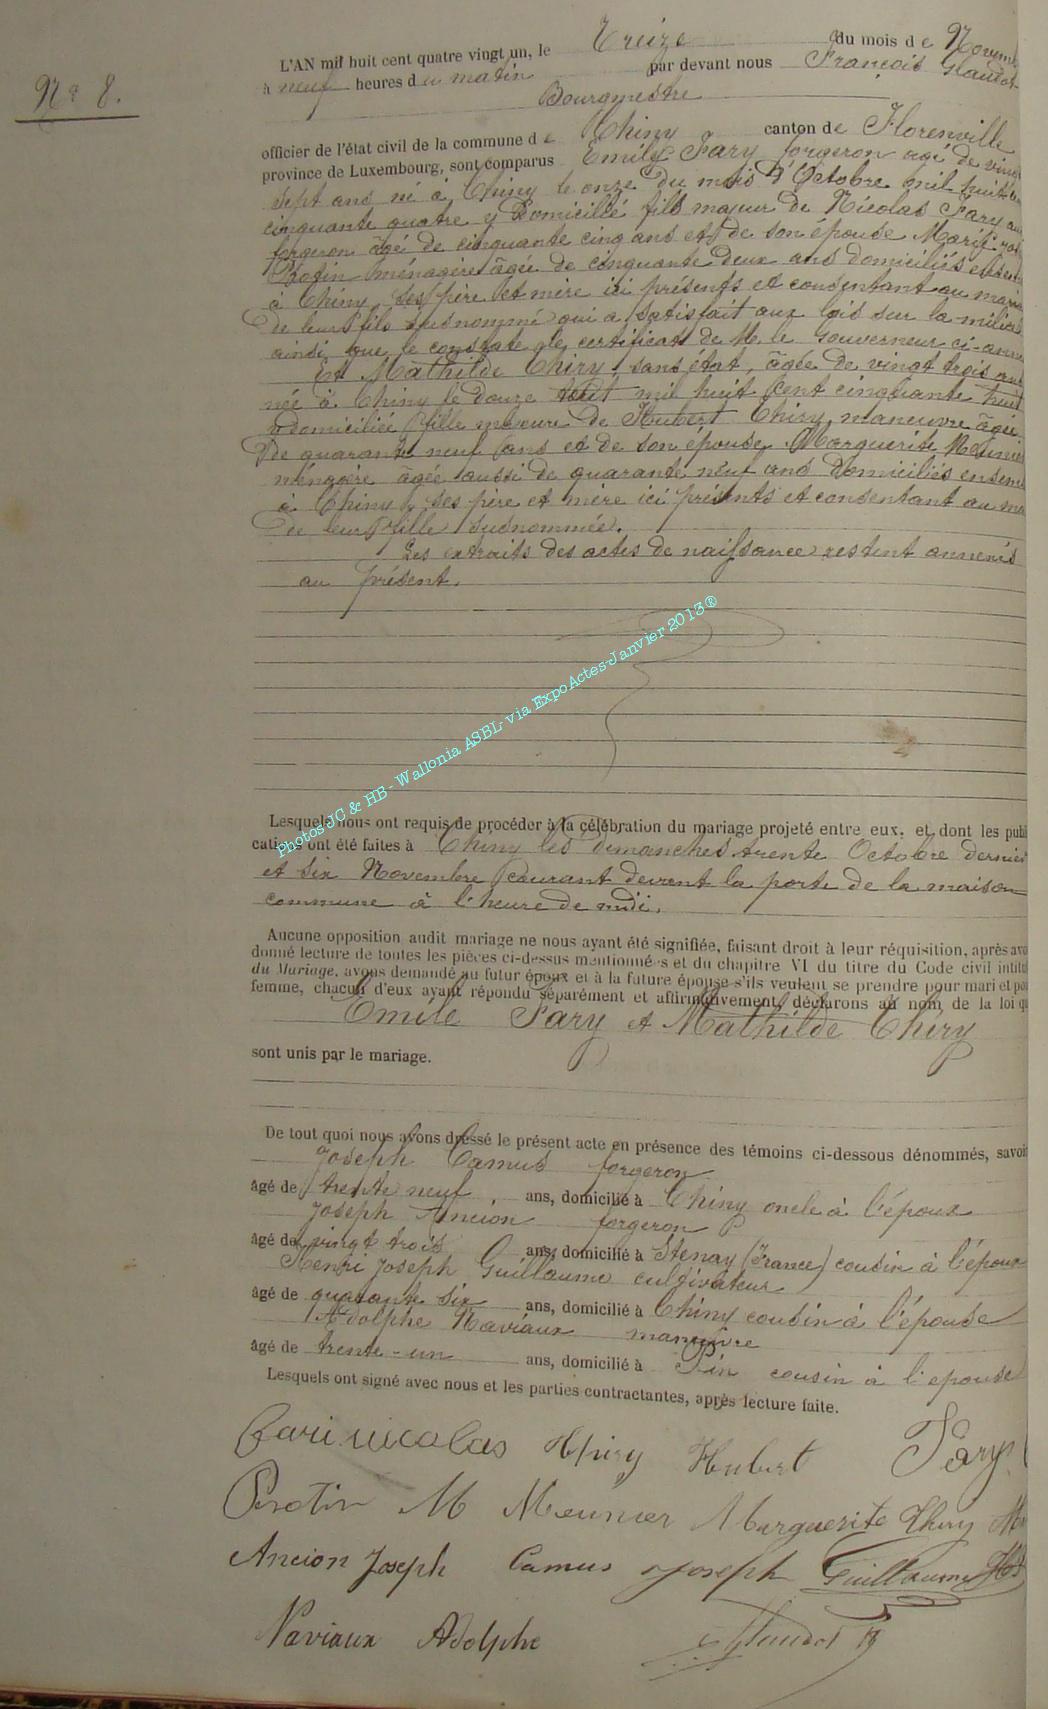 N° 8.
L'AN mil huit cent quatre vingt un, le Treize du mois de Novem
à neuf heures du matin par devant nous François Glaudot
Bourgmestre
officier de l'état civil de la commune de Chiny canton de Florenville
province de Luxembourg, sont comparus Emile Fary forgeron agé de vingt
sept ans né à Chiny le onze du mois d'Octobre mil huit cent
cinquante quatre y domicilié fils majeur de Nicolas Fary
forgeron âgé de cinquante cinq ans et de son épouse Marie
Protin ménagère âgée de cinquante deux ans domiciliés ensem
à Chiny, ses père et mère ici présents et consentant au maria
de leur fils susnommé qui a satisfait aux lois sur la milice
ainsi que le constate le certificat de M. le Gouverneur ci-anne
Et Mathilde Chiry, sans état, âgée de vingt trois ans
née à Chiny le douze août mil huit cent cinquante huit
y domiciliée fille mineure de Hubert Chiry, manœuvre âgé
de quarante neuf ans et de son épouse Marguerite Meunier
ménagère âgée aussi de quarante neuf ans domiciliés ensem
à Chiny, ses père et mère ici présents et consentant au ma
de leur fille susnommée.
Les extraits des actes de naissance restent annexés
au présent.
Photos JC & HB - Wallonia ASBL- via ExpoActes-Janvier 2013®
Lesquels nous ont requis de procéder à la célébration du mariage projeté entre eux, et dont les publi
cations ont été faites à Chiny les dimanches trente Octobre dernier
et six Novembre courant devant la porte de la maison
commune à l'heure de midi.
Aucune opposition audit mariage ne nous ayant été signifiée, faisant droit à leur réquisition, après avo
donné lecture de toutes les pièces ci-dessus mentionnées et du chapitre VI du titre du Code civil intitul
du Mariage, avons demandé au futur époux et à la future épouse s'ils veulent se prendre pour mari et pou
femme, chacun d'eux ayant répondu séparément et affirmativement, déclarons au nom de la loi qu
Emile Fary et Mathilde Chiry
sont unis par le mariage.
De tout quoi nous avons dressé le présent acte en présence des témoins ci-dessous dénommés, savoir
Joseph Camus forgeron
âgé de trente neuf ans, domicilié à Chiny oncle à l'époux
Joseph Ancion forgeron
âgé de vingt trois ans, domicilié à Stenay (France) cousin à l'époux
Henri Joseph Guillaume cultivateur
âgé de quarante six ans, domicilié à Chiny cousin à l'épouse
Adolphe Naviaux manœuvre
âgé de trente-un ans, domicilié à Pin cousin à l'épouse
Lesquels ont signé avec nous et les parties contractantes, après lecture faite.
Fari nicolas Thiry Hubert Fary
Protin M Meunier Marguerite Thiry M
Ancion Joseph Camus Joseph Guillaume
Naviaux Adolphe Glaudot